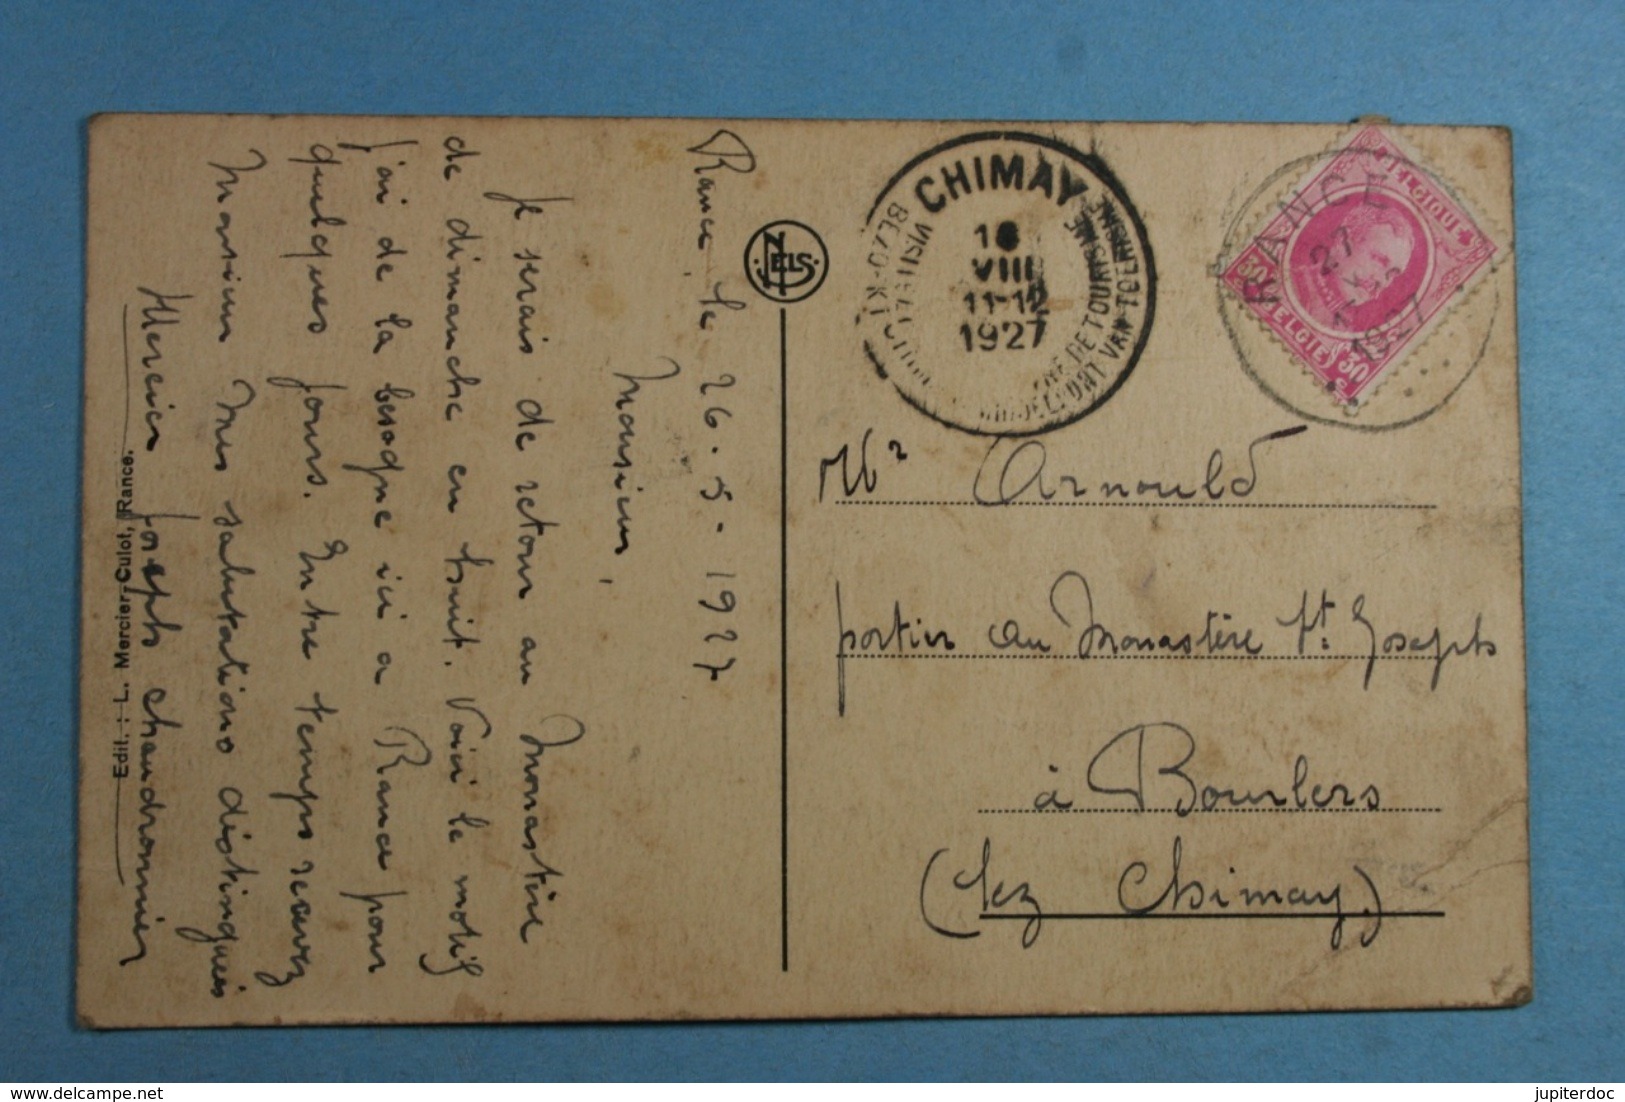 Rance, le 26-5-1927
Monsieur,
Je serais de retour au Monastère
de dimanche en huit. Voici le motif
j'ai de la besogne ici a Rance pour
quelques jours. Entre temps recevez
Monsieur mes salutations distinguées
Mercier Joseph chaudronnier
Edit. : L. Mercier-Culot, Rance.
NELS
CHIMAY
VIII
11-12
1927
RANCE
27
1927
BELGIQUE
BELGIË
30
30
Mr Arnould
portier au Monastère St. Joseph
à Bourlers
(lez Chimay)
jupiterdoc